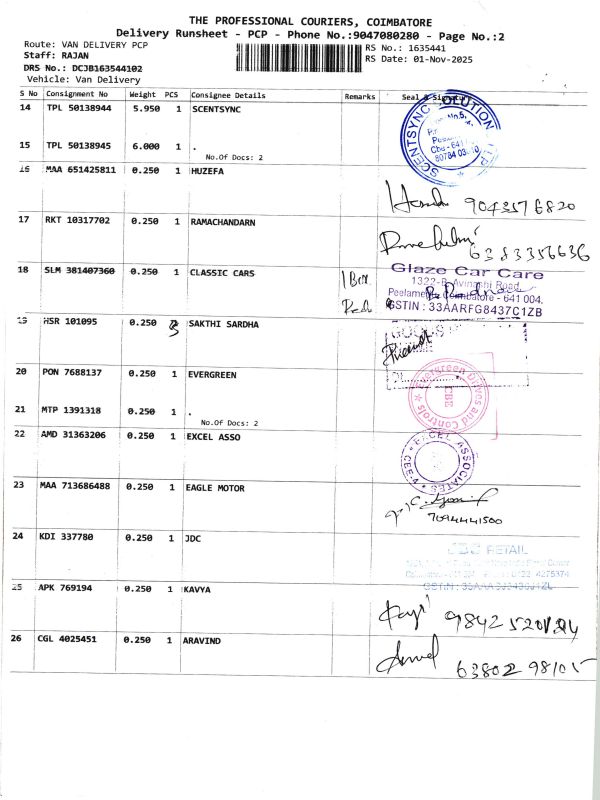 THE PROFESSIONAL COURIERS, COIMBATORE
Delivery Runsheet - PCP - Phone No.:9047080280 - Page No.:2
Route: VAN DELIVERY PCP
Staff: RAJAN
DRS No.: DCJB163544102
Vehicle: Van Delivery
RS No.: 1635441
RS Date: 01-Nov-2025
S No Consignment No Weight PCS Consignee Details Remarks Seal & Signature
14 TPL 50138944 5.950 1 SCENTSYNC
SCENTSYNC SOLUTION
15 TPL 50138945 6.000 1 .
No.Of Docs: 2
16 MAA 651425811 0.250 1 HUZEFA
9043576820
17 RKT 10317702 0.250 1 RAMACHANDARN
6383356636
18 SLM 381407360 0.250 1 CLASSIC CARS
1 Box
Glaze Car Care
1322-B, Avinashi Road,
Peelamedu Coimbatore - 641 004.
GSTIN : 33AARFG8437C1ZB
19 HSR 101095 0.250 3 SAKTHI SARDHA
20 PON 7688137 0.250 1 EVERGREEN
Evergreen Drives and Controls
CBE
21 MTP 1391318 0.250 1 .
No.Of Docs: 2
22 AMD 31363206 0.250 1 EXCEL ASSO
EXCEL ASSOCIATES
23 MAA 713686488 0.250 1 EAGLE MOTOR
7094441500
24 KDI 337780 0.250 1 JDC
RETAIL
25 APK 769194 0.250 1 KAVYA
26 CGL 4025451 0.250 1 ARAVIND
63802 98105